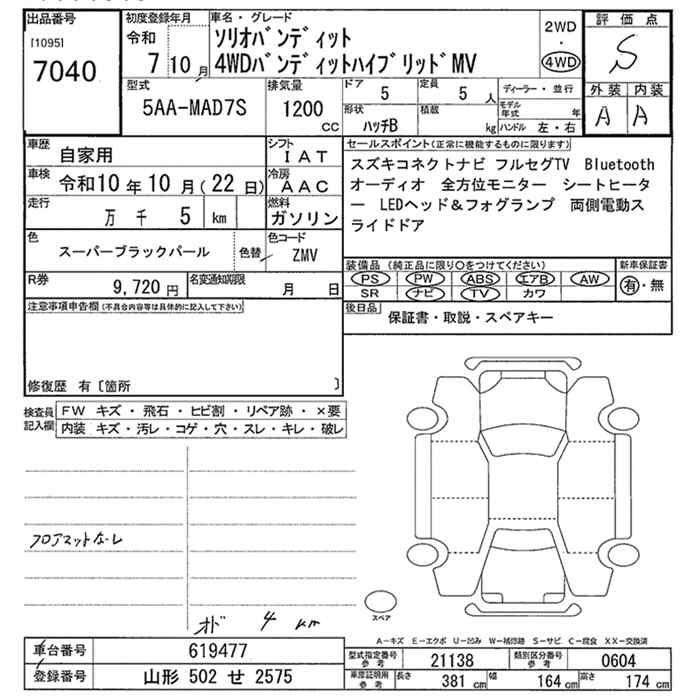 出品番号
[1095]
7040
初度登録年月
令和
7 10 月
車名・グレード
ソリオバンディット
4WDバンディットハイブリッドMV
2WD
・
4WD
評価点
S
外装 内装
A A
型式
5AA-MAD7S
排気量
1200
CC
ドア
5
定員
5 人
形状
ハッチB
積載
kg
ディーラー・並行
モデル年式 年
ハンドル 左・右
車歴
自家用
シフト
I A T
車検
令和10年10月(22日)
冷房
A A C
走行
万 千 5 km
燃料
ガソリン
色
スーパーブラックパール
色替
色コード
ZMV
R券
9,720 円
名変通知期限
月 日
セールスポイント(正常に機能するものに限ります)
スズキコネクトナビ フルセグTV Bluetooth
オーディオ 全方位モニター シートヒータ
ー LEDヘッド&フォグランプ 両側電動ス
ライドドア
装備品(純正品に限り○をつけてください)
PS PW ABS エアB AW
SR ナビ TV カワ
新車保証書
有・無
後日品
保証書・取説・スペアキー
注意事項申告欄(不具合内容等は具体的に記入して下さい)
修復歴 有〔箇所 〕
検査員
記入欄
FW キズ・飛石・ヒビ割・リペア跡・×要
内装 キズ・汚レ・コゲ・穴・スレ・キレ・破レ
フロアマットなし
オド 4 km
スペア
A-キズ E-エクボ U-凹み W-補修跡 S-サビ C-腐食 XX-交換済
車台番号
619477
登録番号
山形 502 せ 2575
型式指定番号
参考
21138
類別区分番号
参考
0604
車庫証明用
参考
長さ 381 cm
幅 164 cm
高さ 174 cm